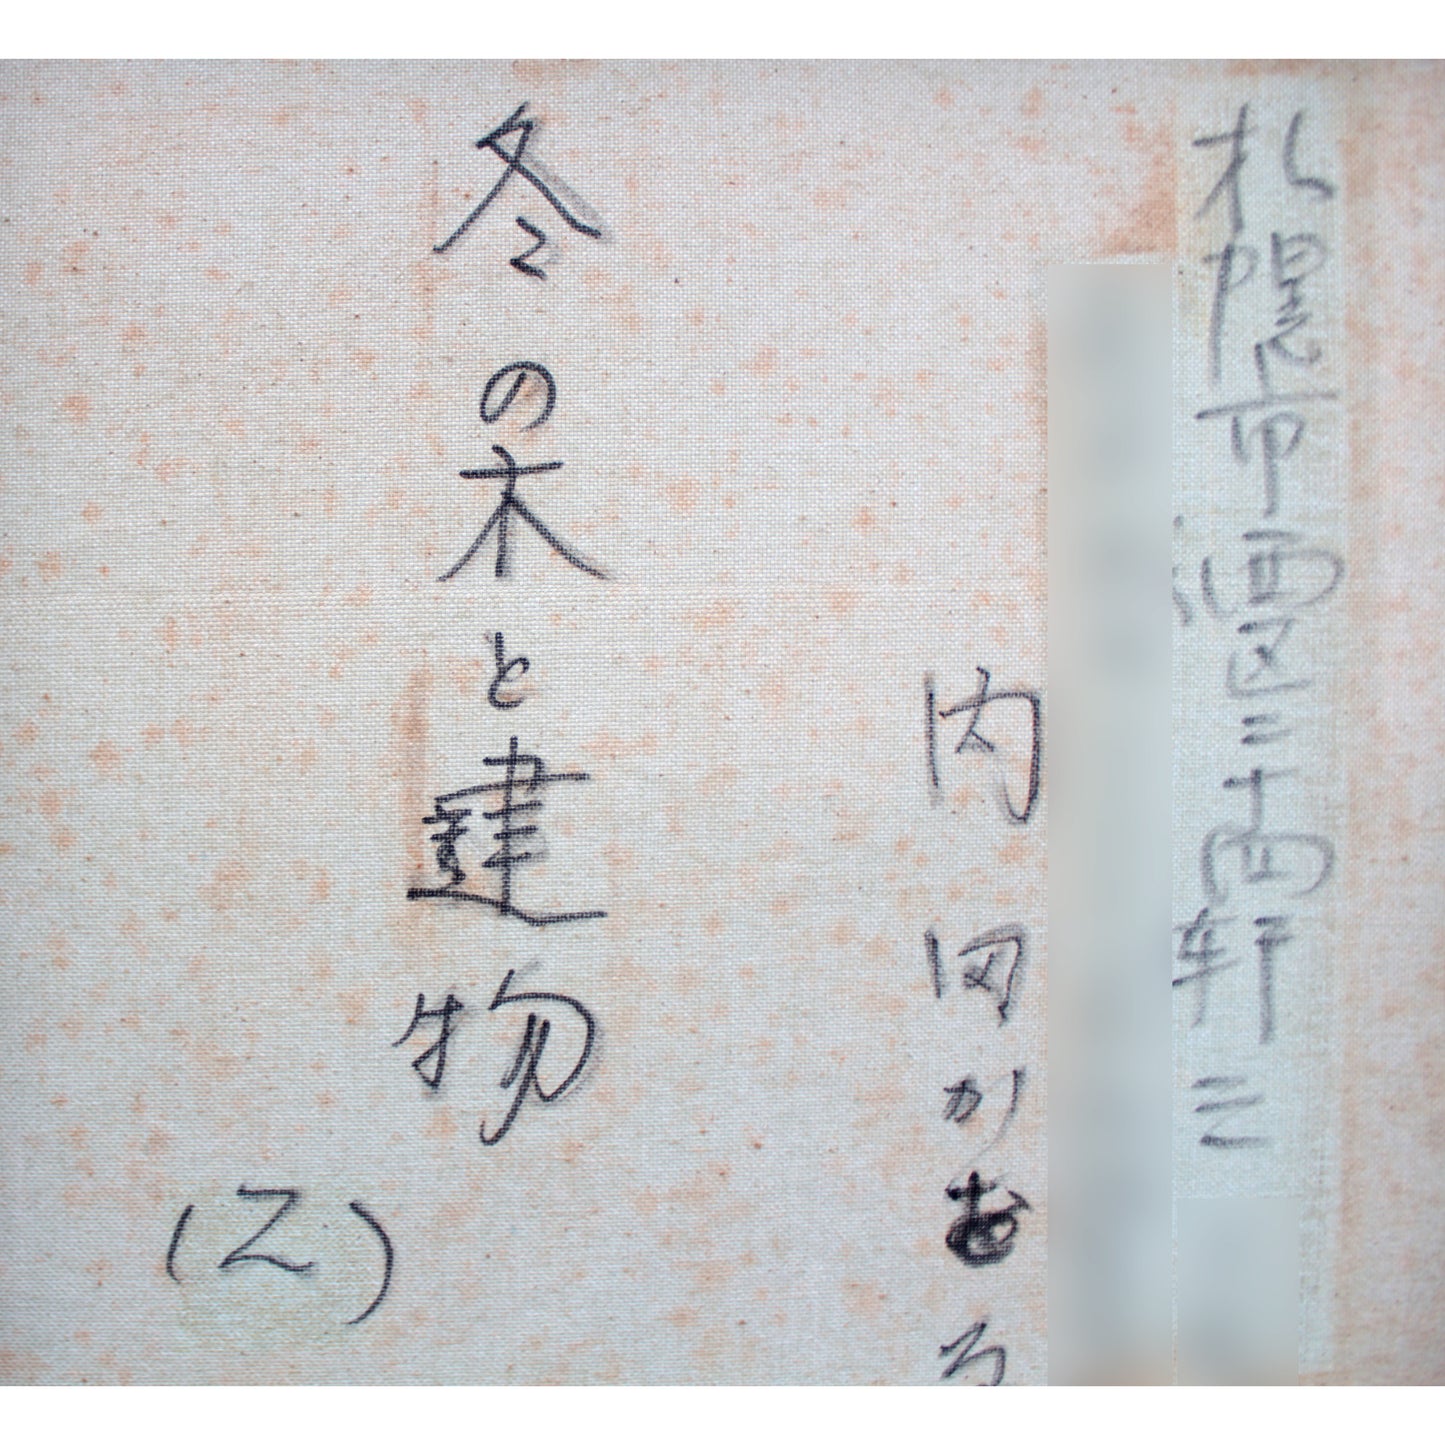 札幌市西区二十四軒三
内田か
冬の木と建物
(2)